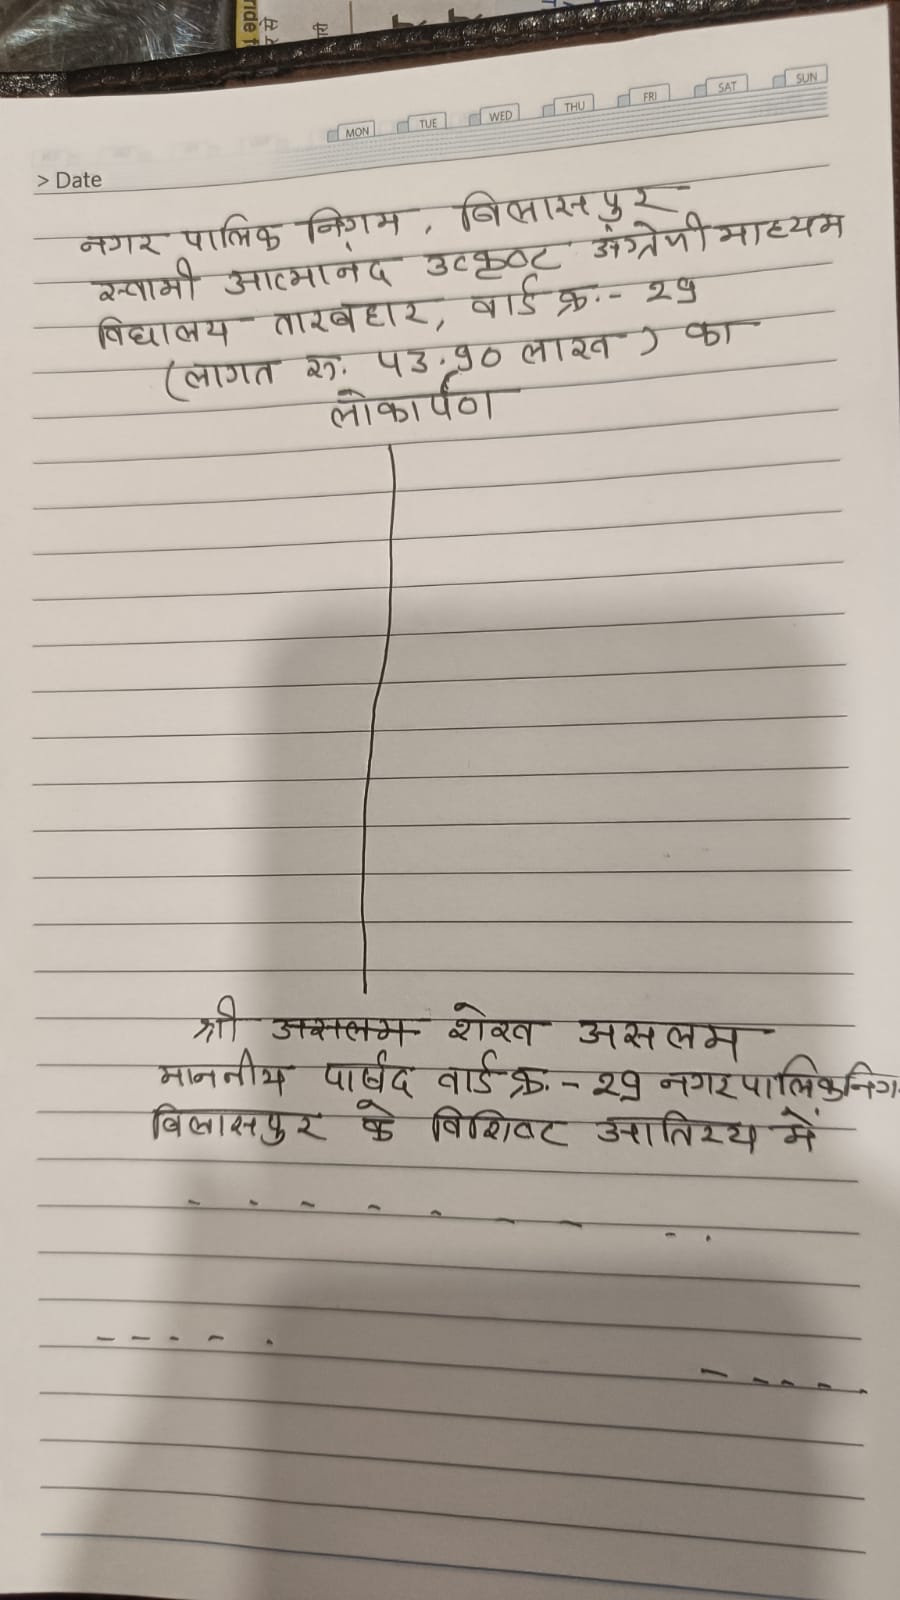 MON TUE WED THU FRI SAT SUN
> Date
नगर पालिक निगम, बिलासपुर
स्वामी आत्मानंद उत्कृष्ट अंग्रेजी माध्यम
विद्यालय तारबहार, वार्ड क्र.- २९
(लागत रु. ५३.९० लाख) का
लोकार्पण
श्री असलम शेख असलम
माननीय पार्षद वार्ड क्र.- २९ नगर पालिक निग
बिलासपुर के विशिष्ट आतिथ्य में